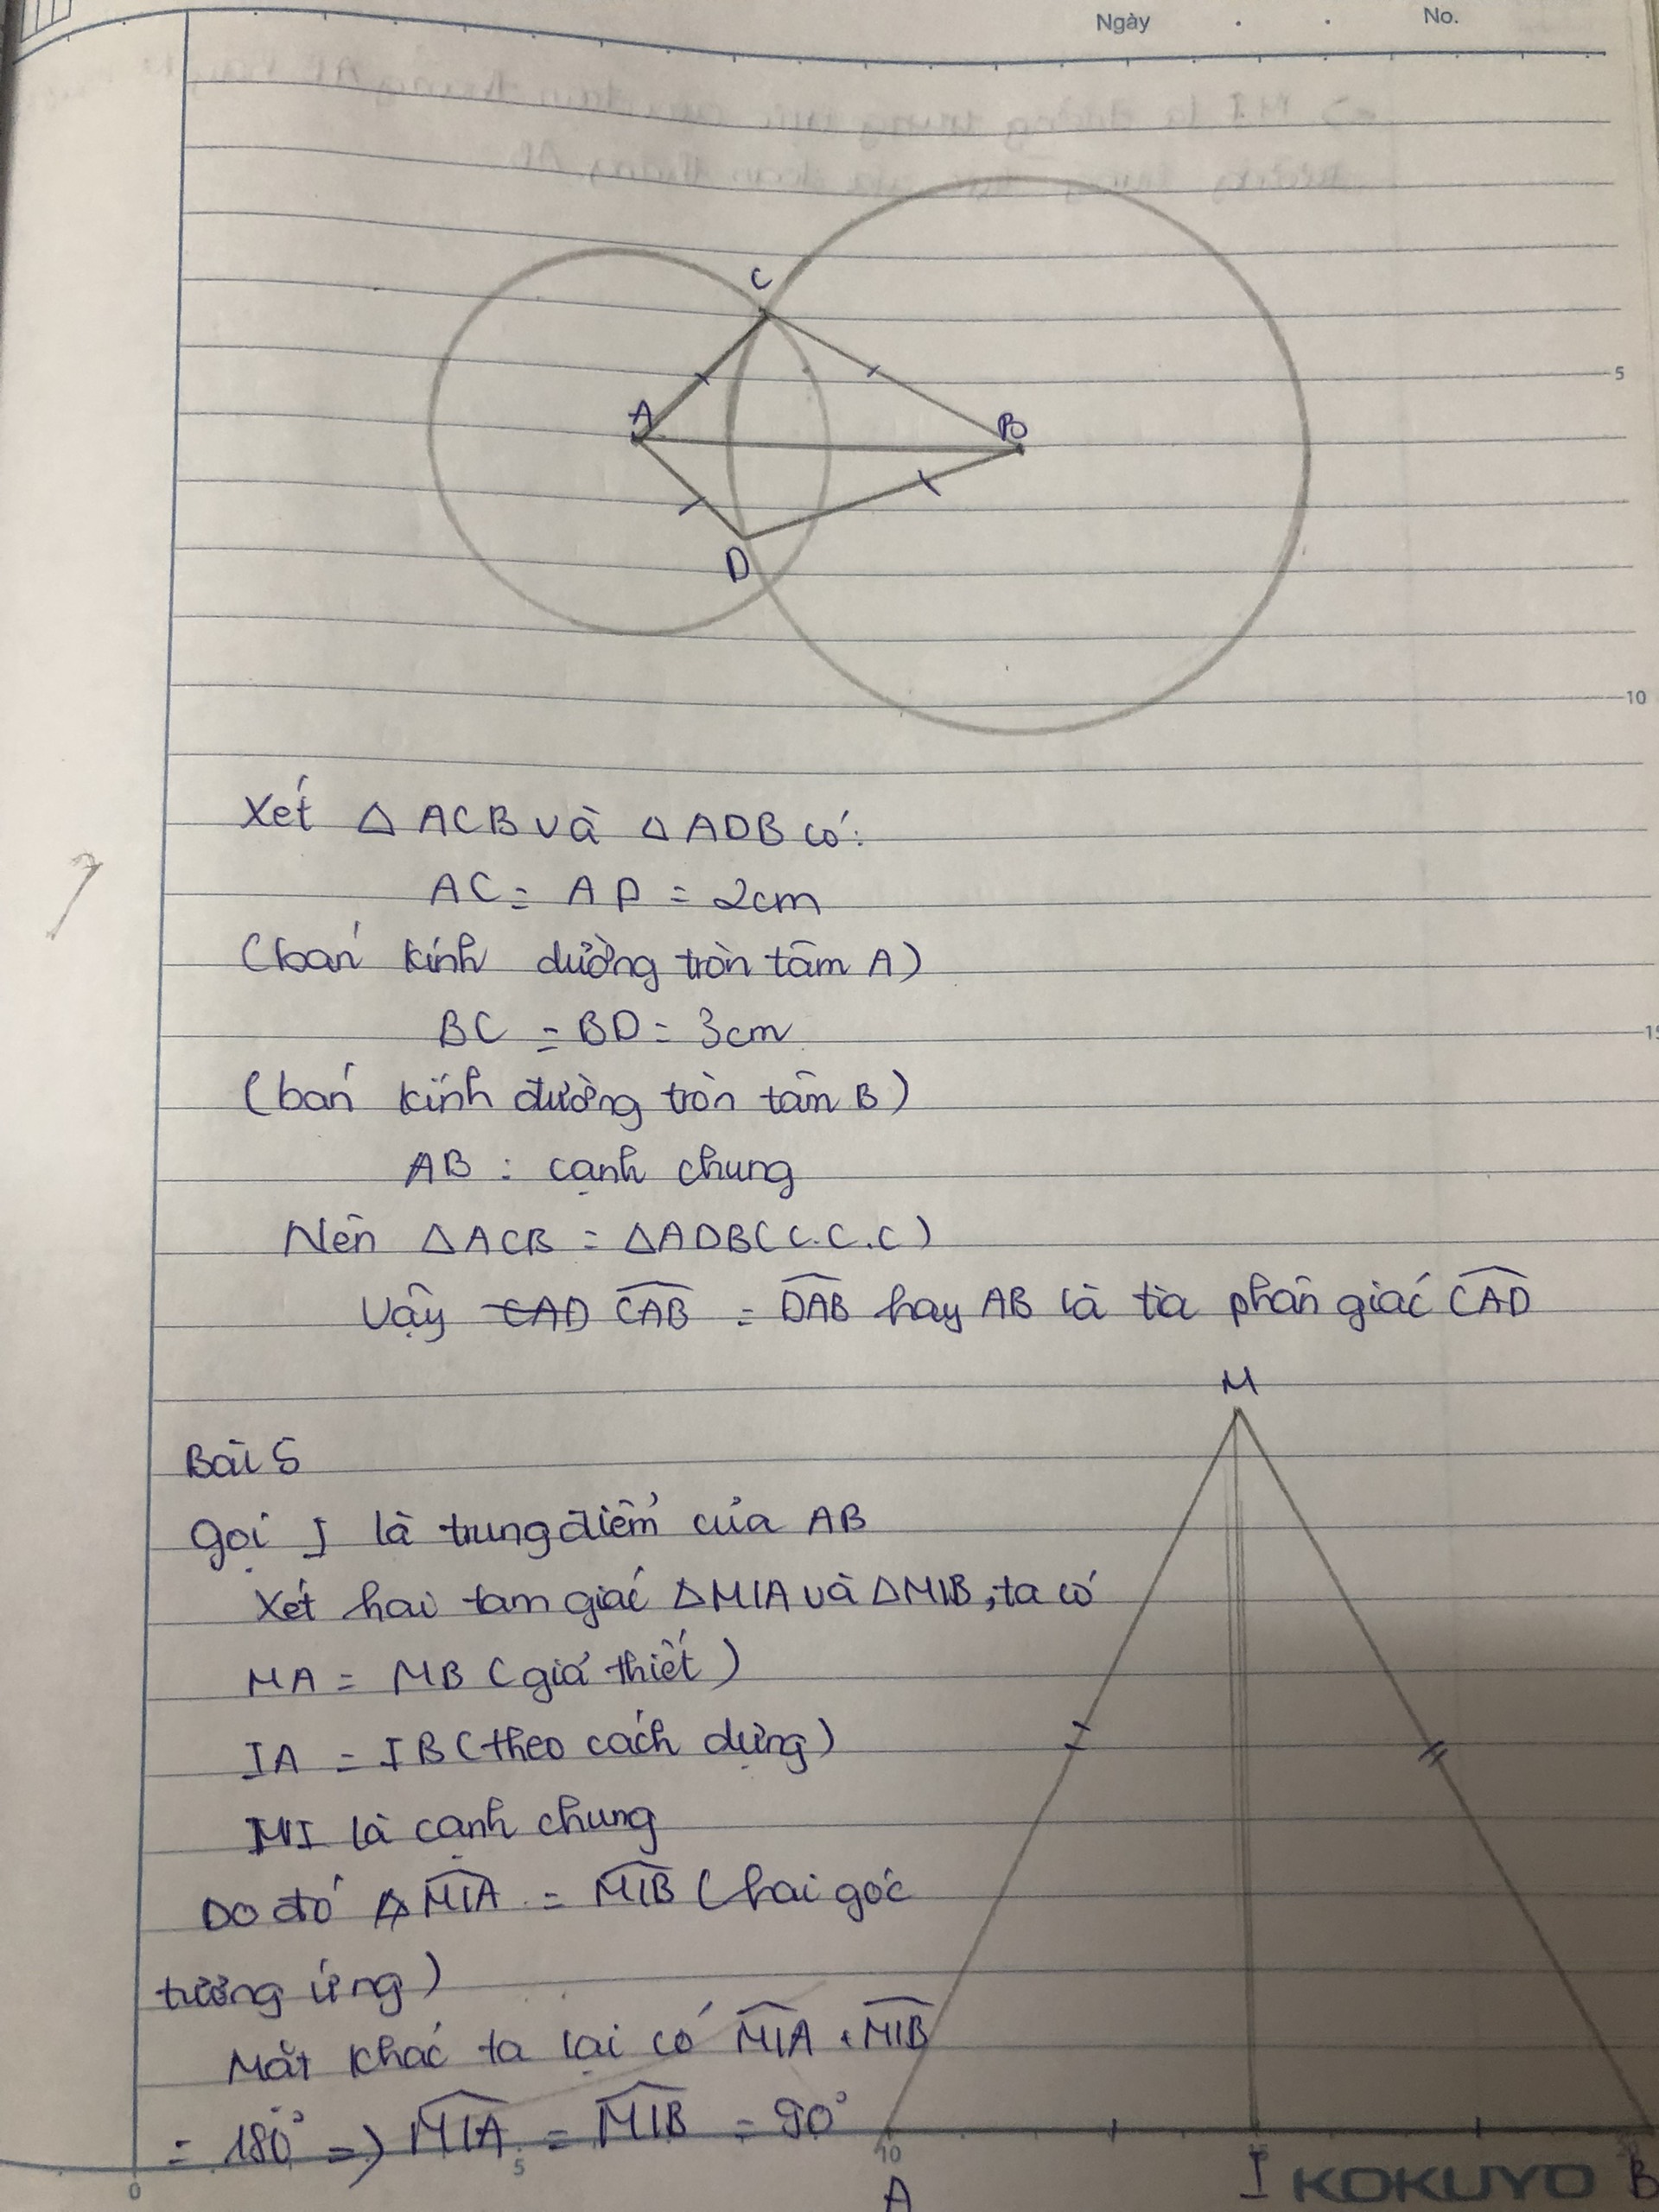 Ngày . . No.
C
A
B
D
5
10
Xét △ ACB và △ ADB có:
AC = AD = 2cm
(bán kính đường tròn tâm A)
BC = BD = 3cm
15
(bán kính đường tròn tâm B)
AB : cạnh chung
Nên △ACB = △ADB (c.c.c)
Vậy CAD CAB = DAB hay AB là tia phân giác CAD
M
Bài 5
Gọi I là trung điểm của AB
Xét hai tam giác △MIA và △MIB, ta có
MA = MB (giả thiết)
IA = IB (theo cách dựng)
MI là cạnh chung
Do đó MIA = MIB (hai góc
tương ứng)
Mặt khác ta lại có MIA + MIB
= 180° => MIA = MIB = 90°
0 5 10
A I B
KOKUYO